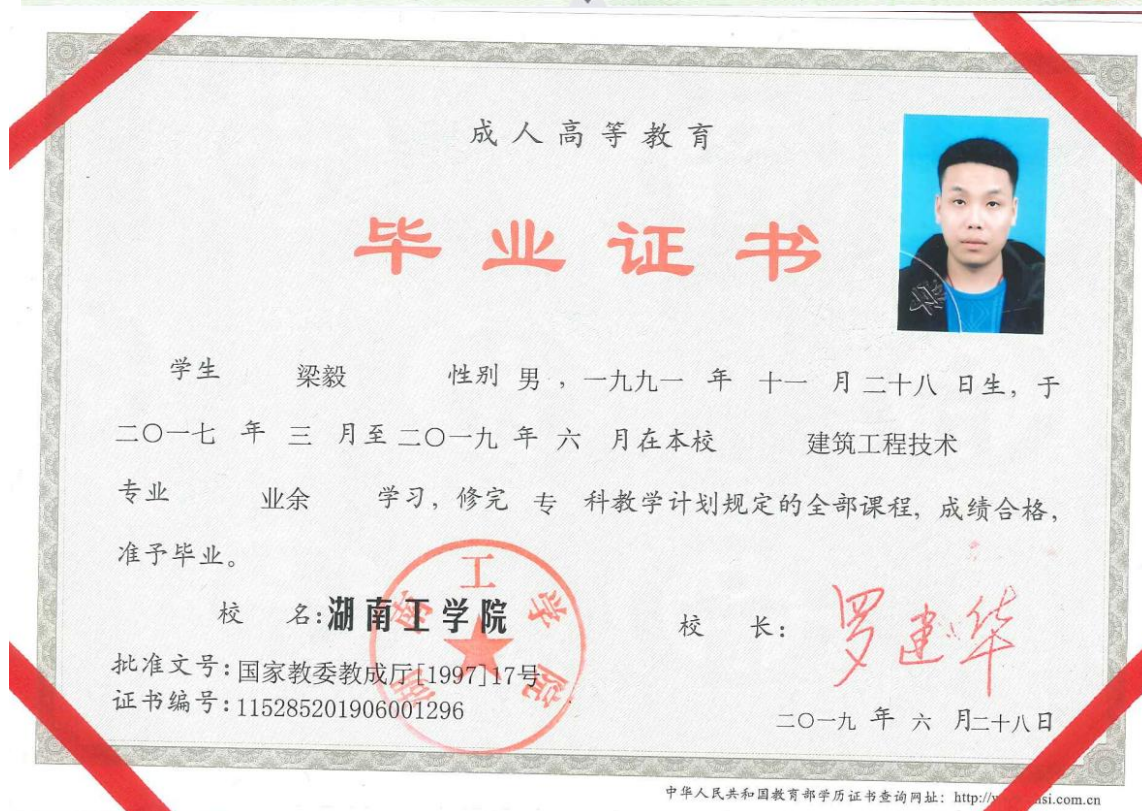 成人高等教育
毕业证书
学生 梁毅 性别 男，一九九一 年 十一 月二十八 日生，于
二〇一七 年 三 月至二〇一九 年 六 月在本校 建筑工程技术
专业 业余 学习，修完 专 科教学计划规定的全部课程，成绩合格，
准予毕业。
校 名：湖南工学院
湖南工学院
校 长：罗建华
批准文号：国家教委教成厅[1997]17号
证书编号：115285201906001296
二〇一九 年 六 月二十八日
中华人民共和国教育部学历证书查询网址：http://
si.com.cn